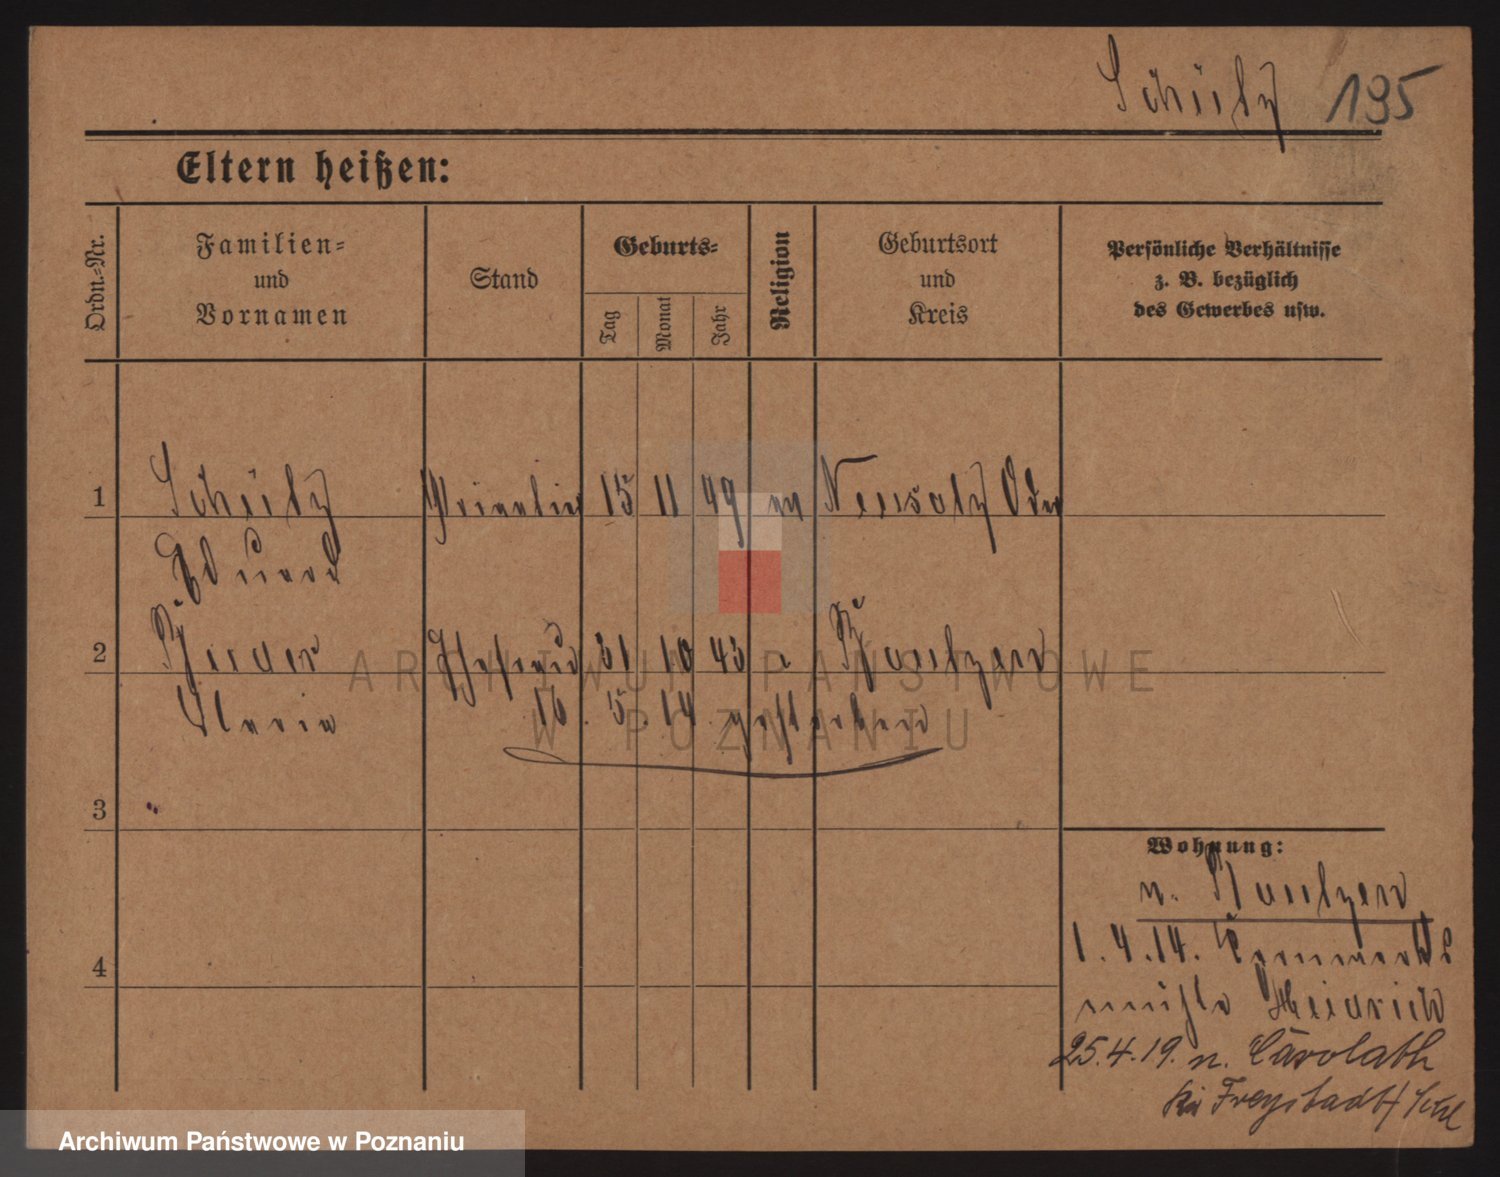 Schulz 195
Eltern heißen:
Ordn.-Nr.
Familien-
und
Vornamen
Stand
Geburts-
Tag
Monat
Jahr
Religion
Geburtsort
und
Kreis
Persönliche Verhältnisse
z. B. bezüglich
des Gewerbes usw.
1 Schulz 15 11 49 Neusalz Oder
Eduard
2 Ehefrau 31 10 43 Bautzen
Maria 16. 5. 14 gestorben
3
4
Wohnung:
n. Bautzen
1.4.14.
mühle Heinrich
25.4.19. n. Carolath
Kr Freystadt/Schl
ARCHIWUM PAŃSTWOWE
W POZNANIU
Archiwum Państwowe w Poznaniu